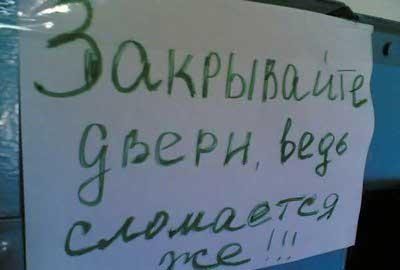 Закрывайте
двери, ведь
сломается
же!!!